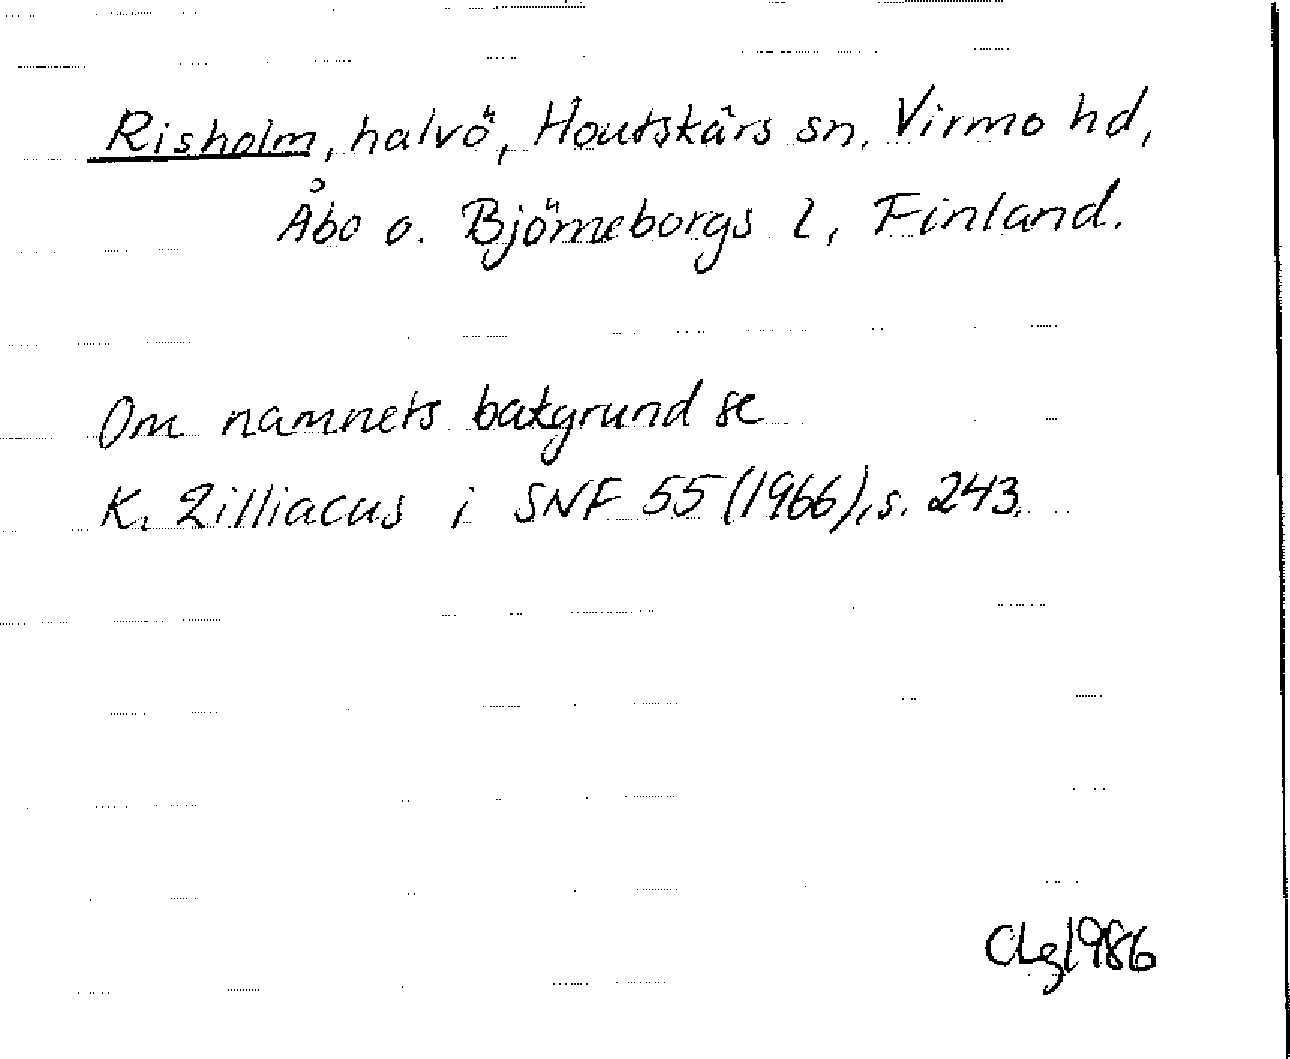 Risholm, halvö, Houtskärs sn, Virmo hd,
Åbo o. Björneborgs l, Finland.
Om namnets bakgrund se
K. Zilliacus i SNF 55 (1966), s. 243.
CLg 1986